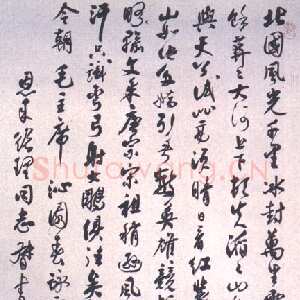 北國風光千里冰封萬里雪
餘莽莽大河上下頓失滔滔山
與天公試比高須晴日看紅裝
山如此多嬌引無數英雄競
略輸文采唐宗宋祖稍遜風
汗只識彎弓射大雕俱往矣
今朝 毛主席 沁園春詠
理同志